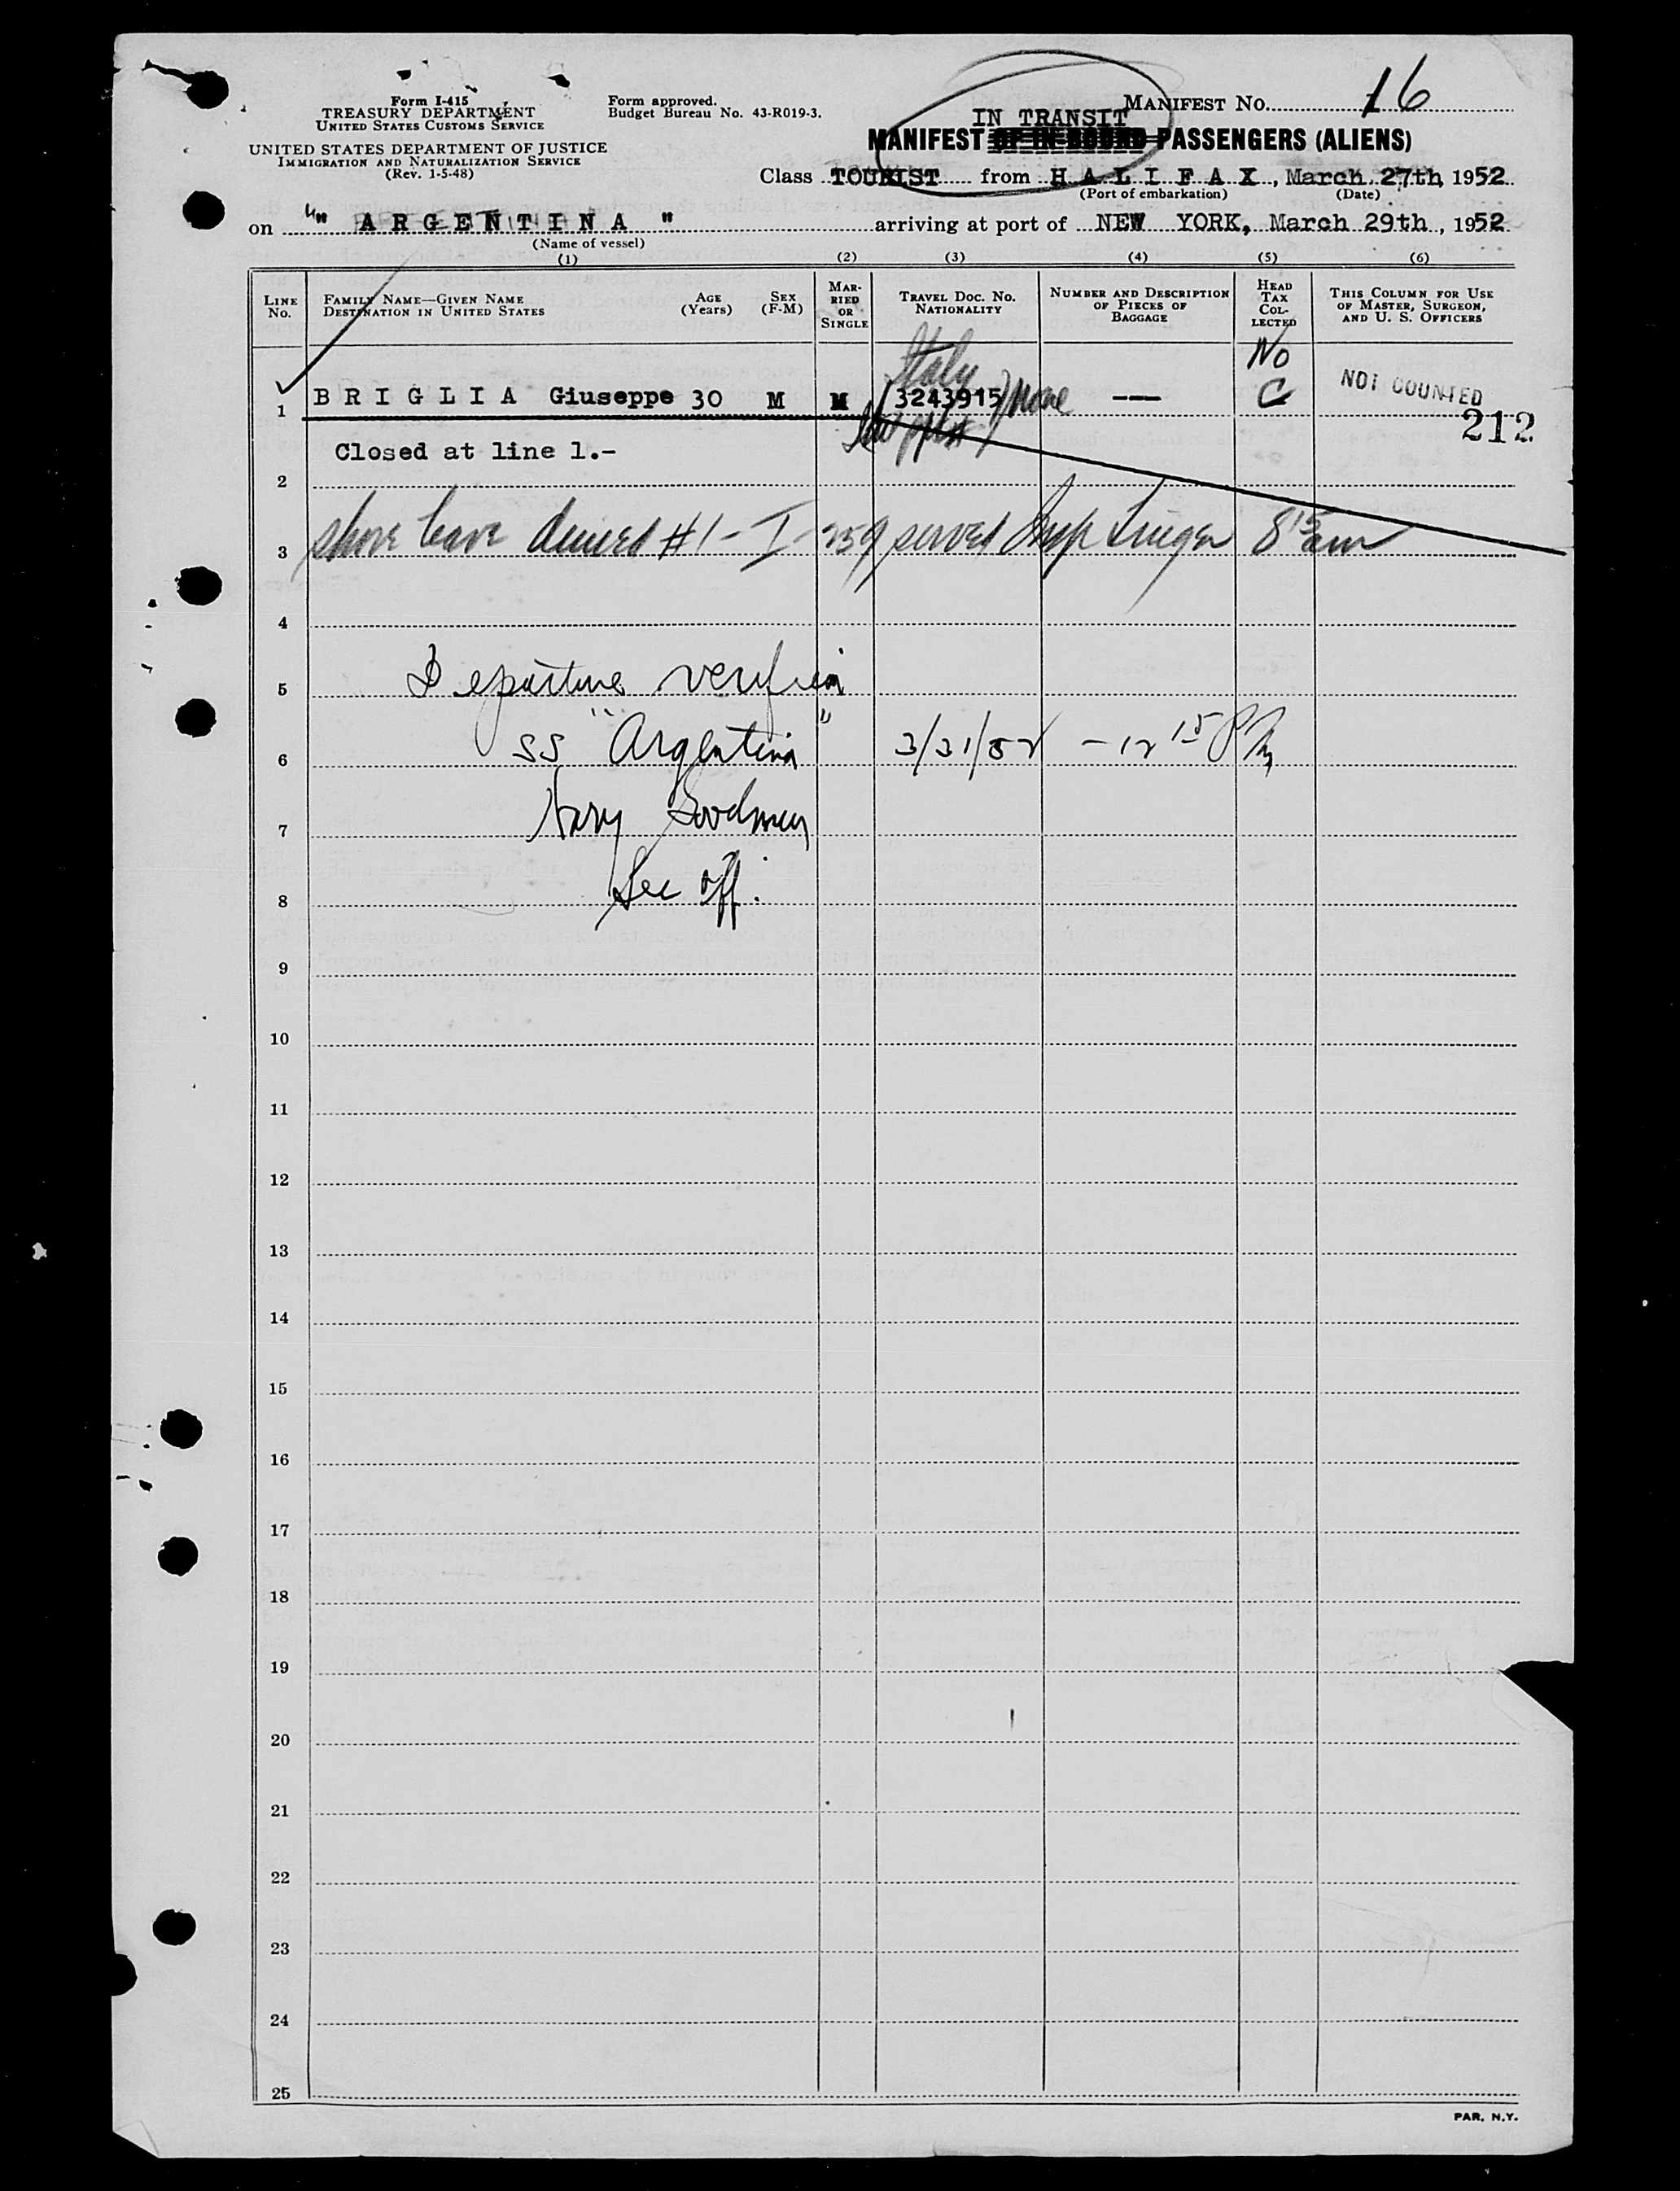 Form I-415
TREASURY DEPARTMENT
UNITED STATES CUSTOMS SERVICE
UNITED STATES DEPARTMENT OF JUSTICE
IMMIGRATION AND NATURALIZATION SERVICE
(Rev. 1-5-48)
Form approved.
Budget Bureau No. 43-R019-3.
MANIFEST NO. 16
IN TRANSIT
MANIFEST OF IN-BOUND PASSENGERS (ALIENS)
Class TOURIST from H A L I F A X, March 27th, 1952
(Port of embarkation) (Date)
on " A R G E N T I N A " arriving at port of NEW YORK, March 29th, 1952
(Name of vessel)
(1) (2) (3) (4) (5) (6)
LINE NO.
FAMILY NAME—GIVEN NAME
DESTINATION IN UNITED STATES
AGE (Years)
SEX (F-M)
MARRIED OR SINGLE
TRAVEL DOC. NO.
NATIONALITY
NUMBER AND DESCRIPTION OF PIECES OF BAGGAGE
HEAD TAX COLLECTED
THIS COLUMN FOR USE OF MASTER, SURGEON, AND U. S. OFFICERS
Italy No
1 B R I G L I A Giuseppe 30 M M 3243915 None — C NOT COUNTED
212
Closed at line 1.-
2
3 shore leave denied #1 - I-259 served 8 15 am
4
5 Departure
6 SS "Argentina" 3/31/52 - 12 15 PM
7 Goodman
8 Sec off.
9
10
11
12
13
14
15
16
17
18
19
20
21
22
23
24
25
PAR. N.Y.